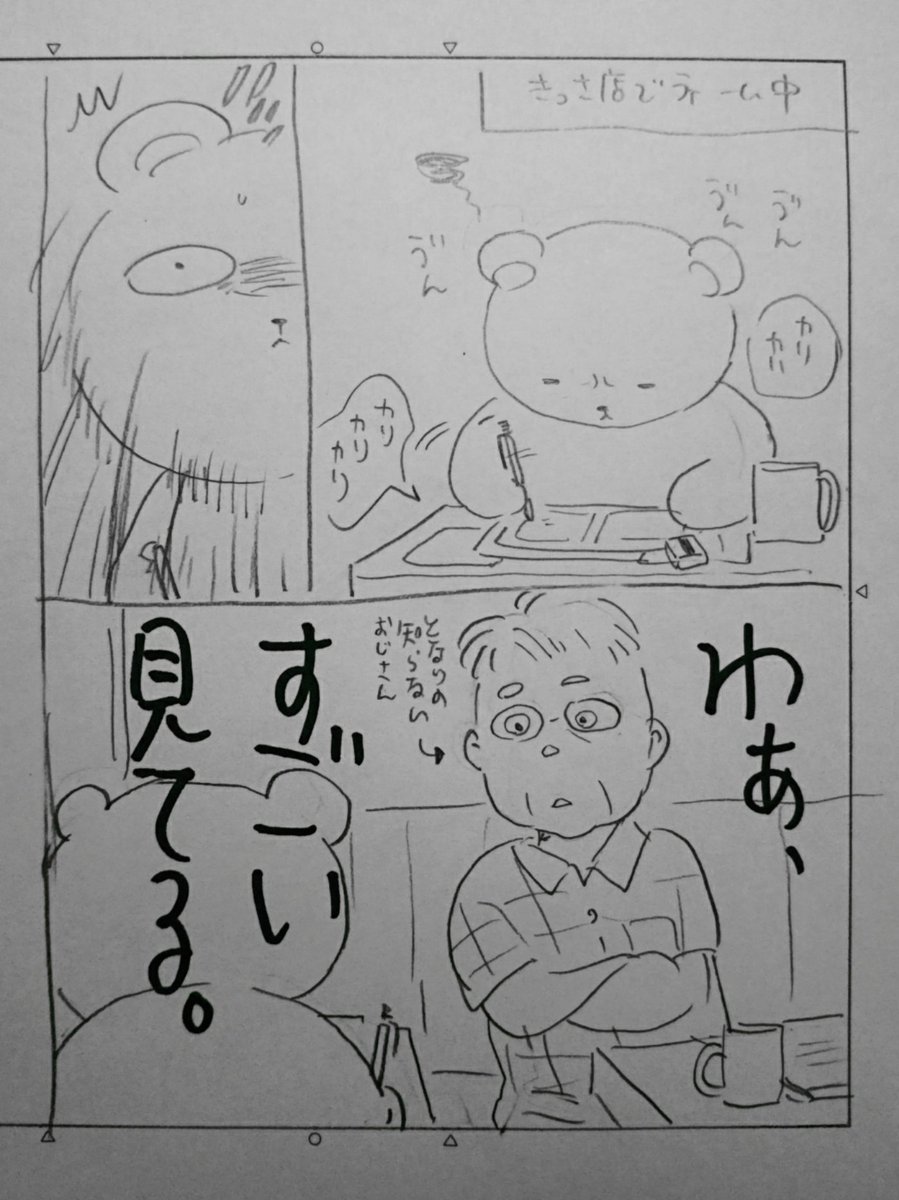 きっさ店でネーム中
ゔん
ゔん
ゔん
カリ
カリ
カリ
カリ
カリ
わあ、
となりの
知らない
おじさん
すごい
見てる。